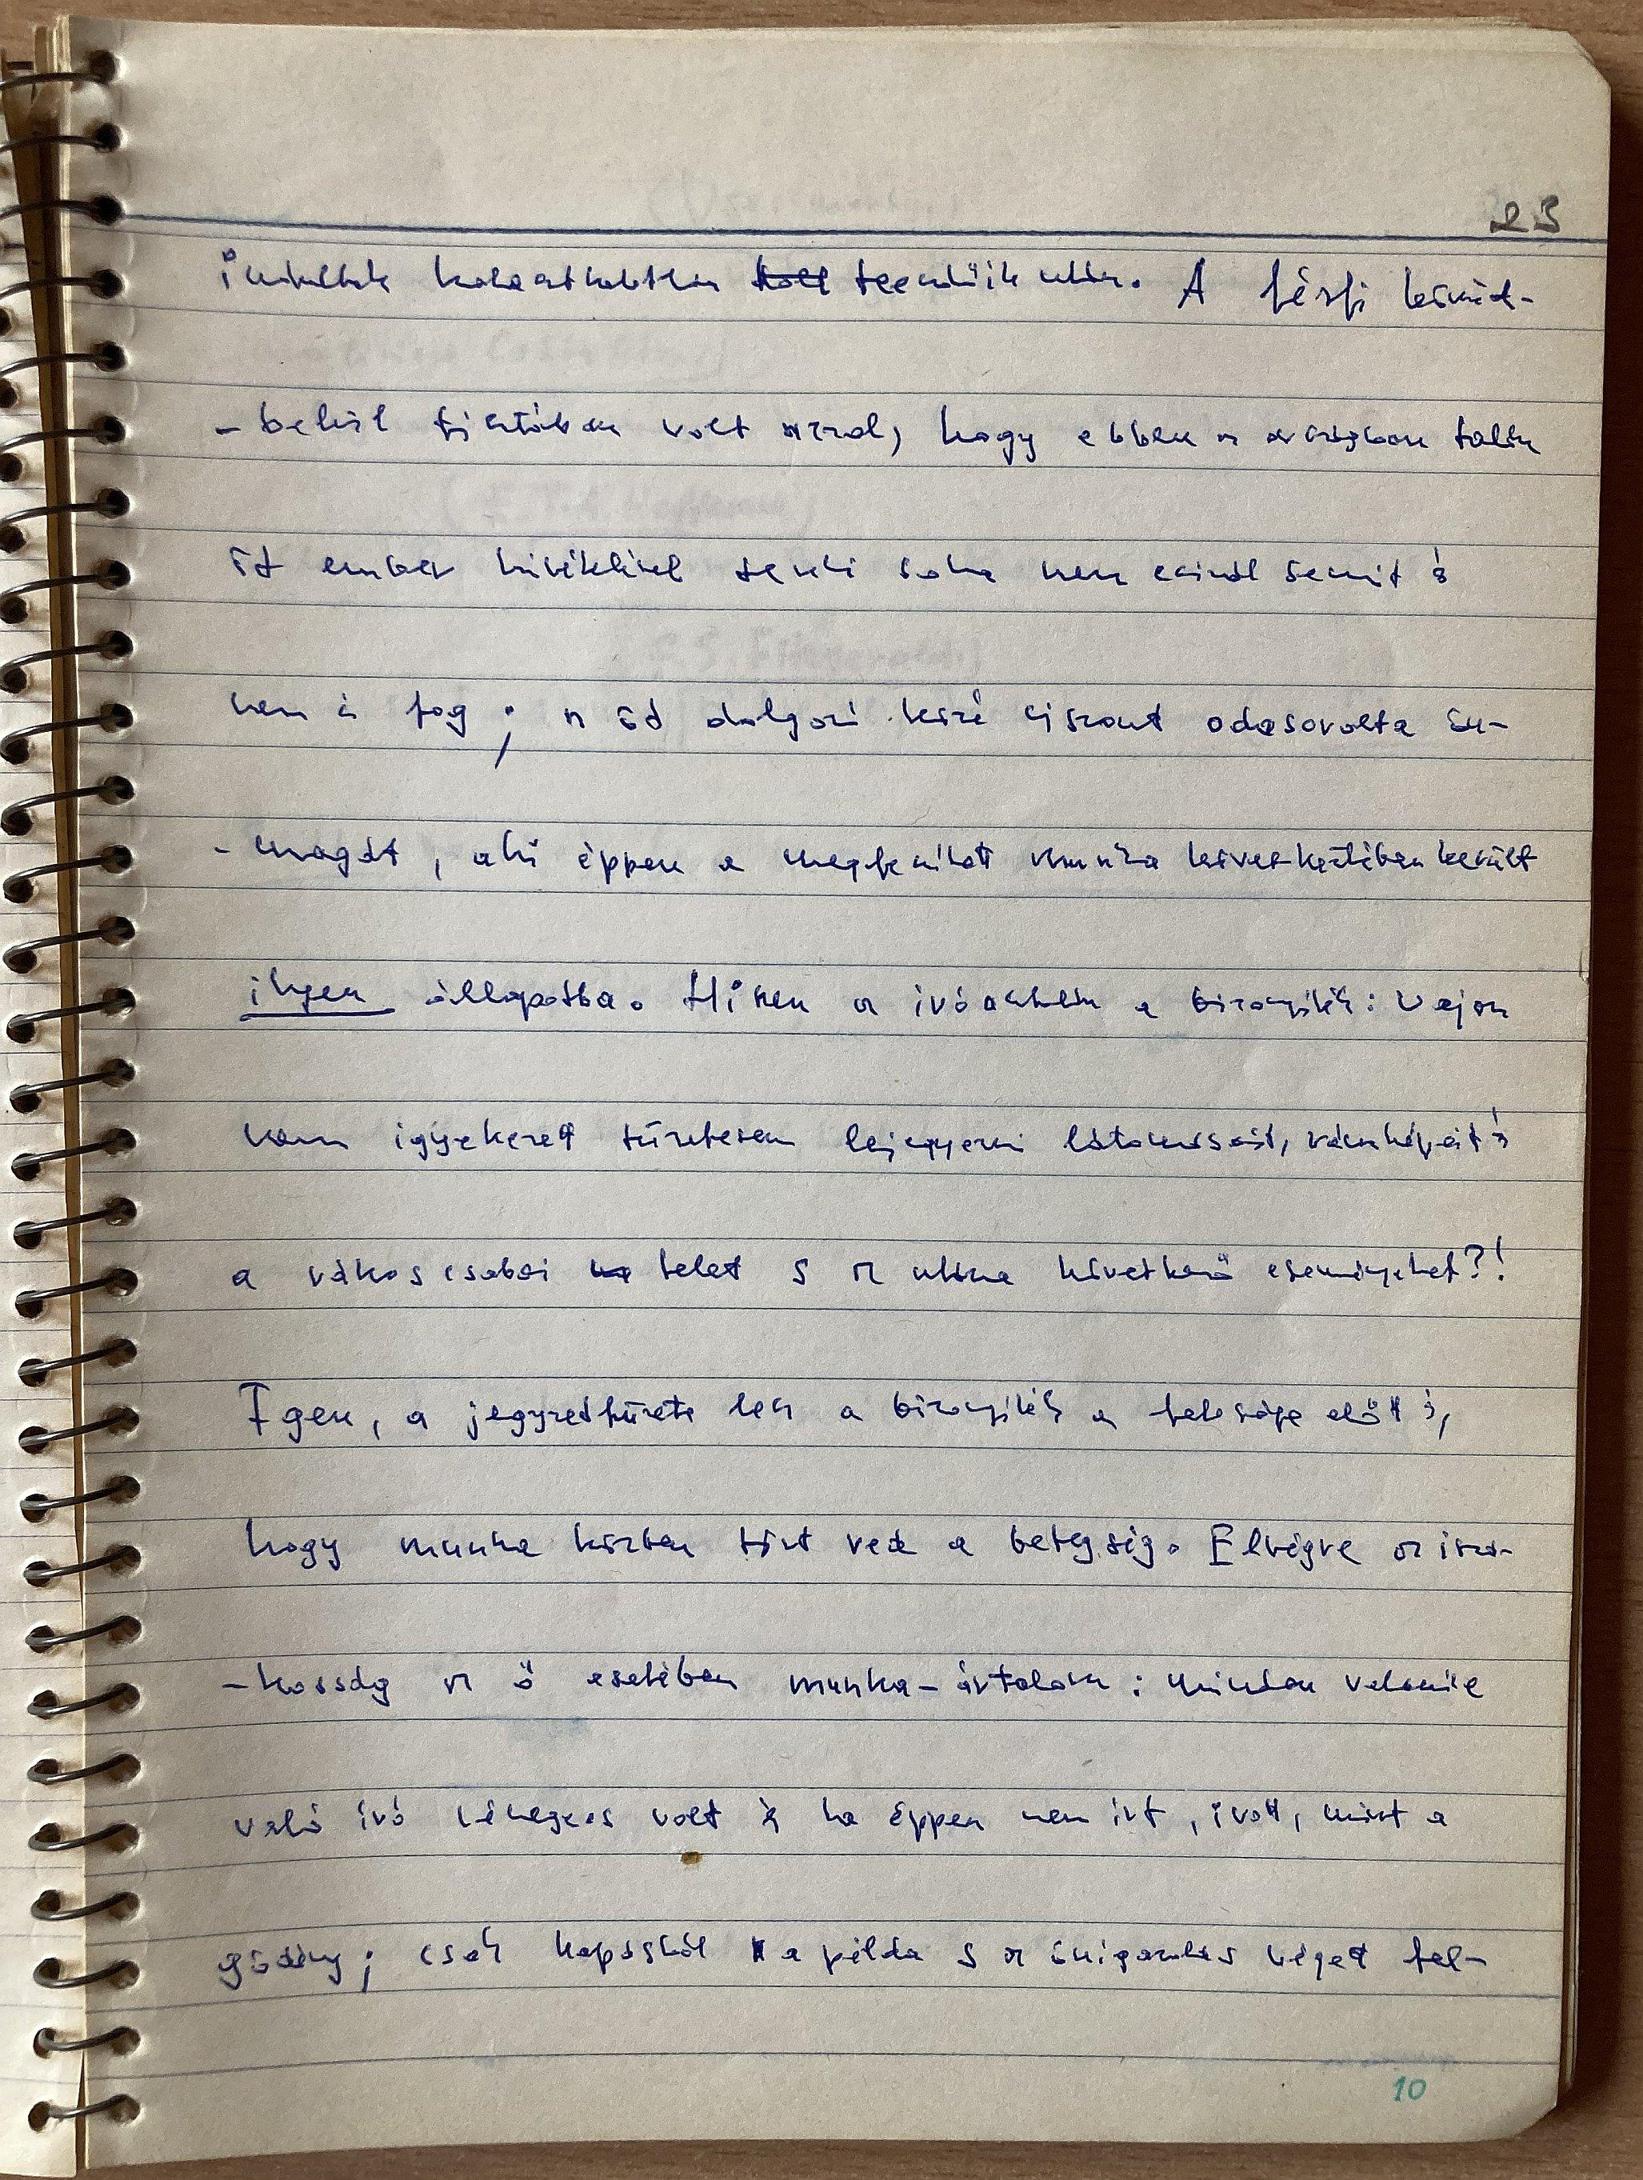 23
kellett teendőik után. A férfi körül-
-belül tisztában volt azzal, hogy ebben az országban talán
öt ember kivételével senki soha nem csinál semmit és
nem is fog; az öt dolgozó közé viszont odasorolta ön-
-magát, aki éppen a megfeszített munka következtében került
ilyen állapotba. Hiszen az ivóasztalán a bizonyíték: vajon
nem igyekezett türelmesen lejegyezni látomásait, rémképeit és
a rákoscsabai telet s az utána következő eseményeket?!
Igen, a jegyzetfüzete lesz a bizonyíték a felesége előtt is,
hogy munka közben tört rea a betegség. Elvégre az iszá-
-kosság az ő esetében munka-ártalom: minden valamire
való író részeges volt és ha éppen nem írt, ivott, mint a
gödény; csak kapásból a példa s az önigazolás végett fel-
10